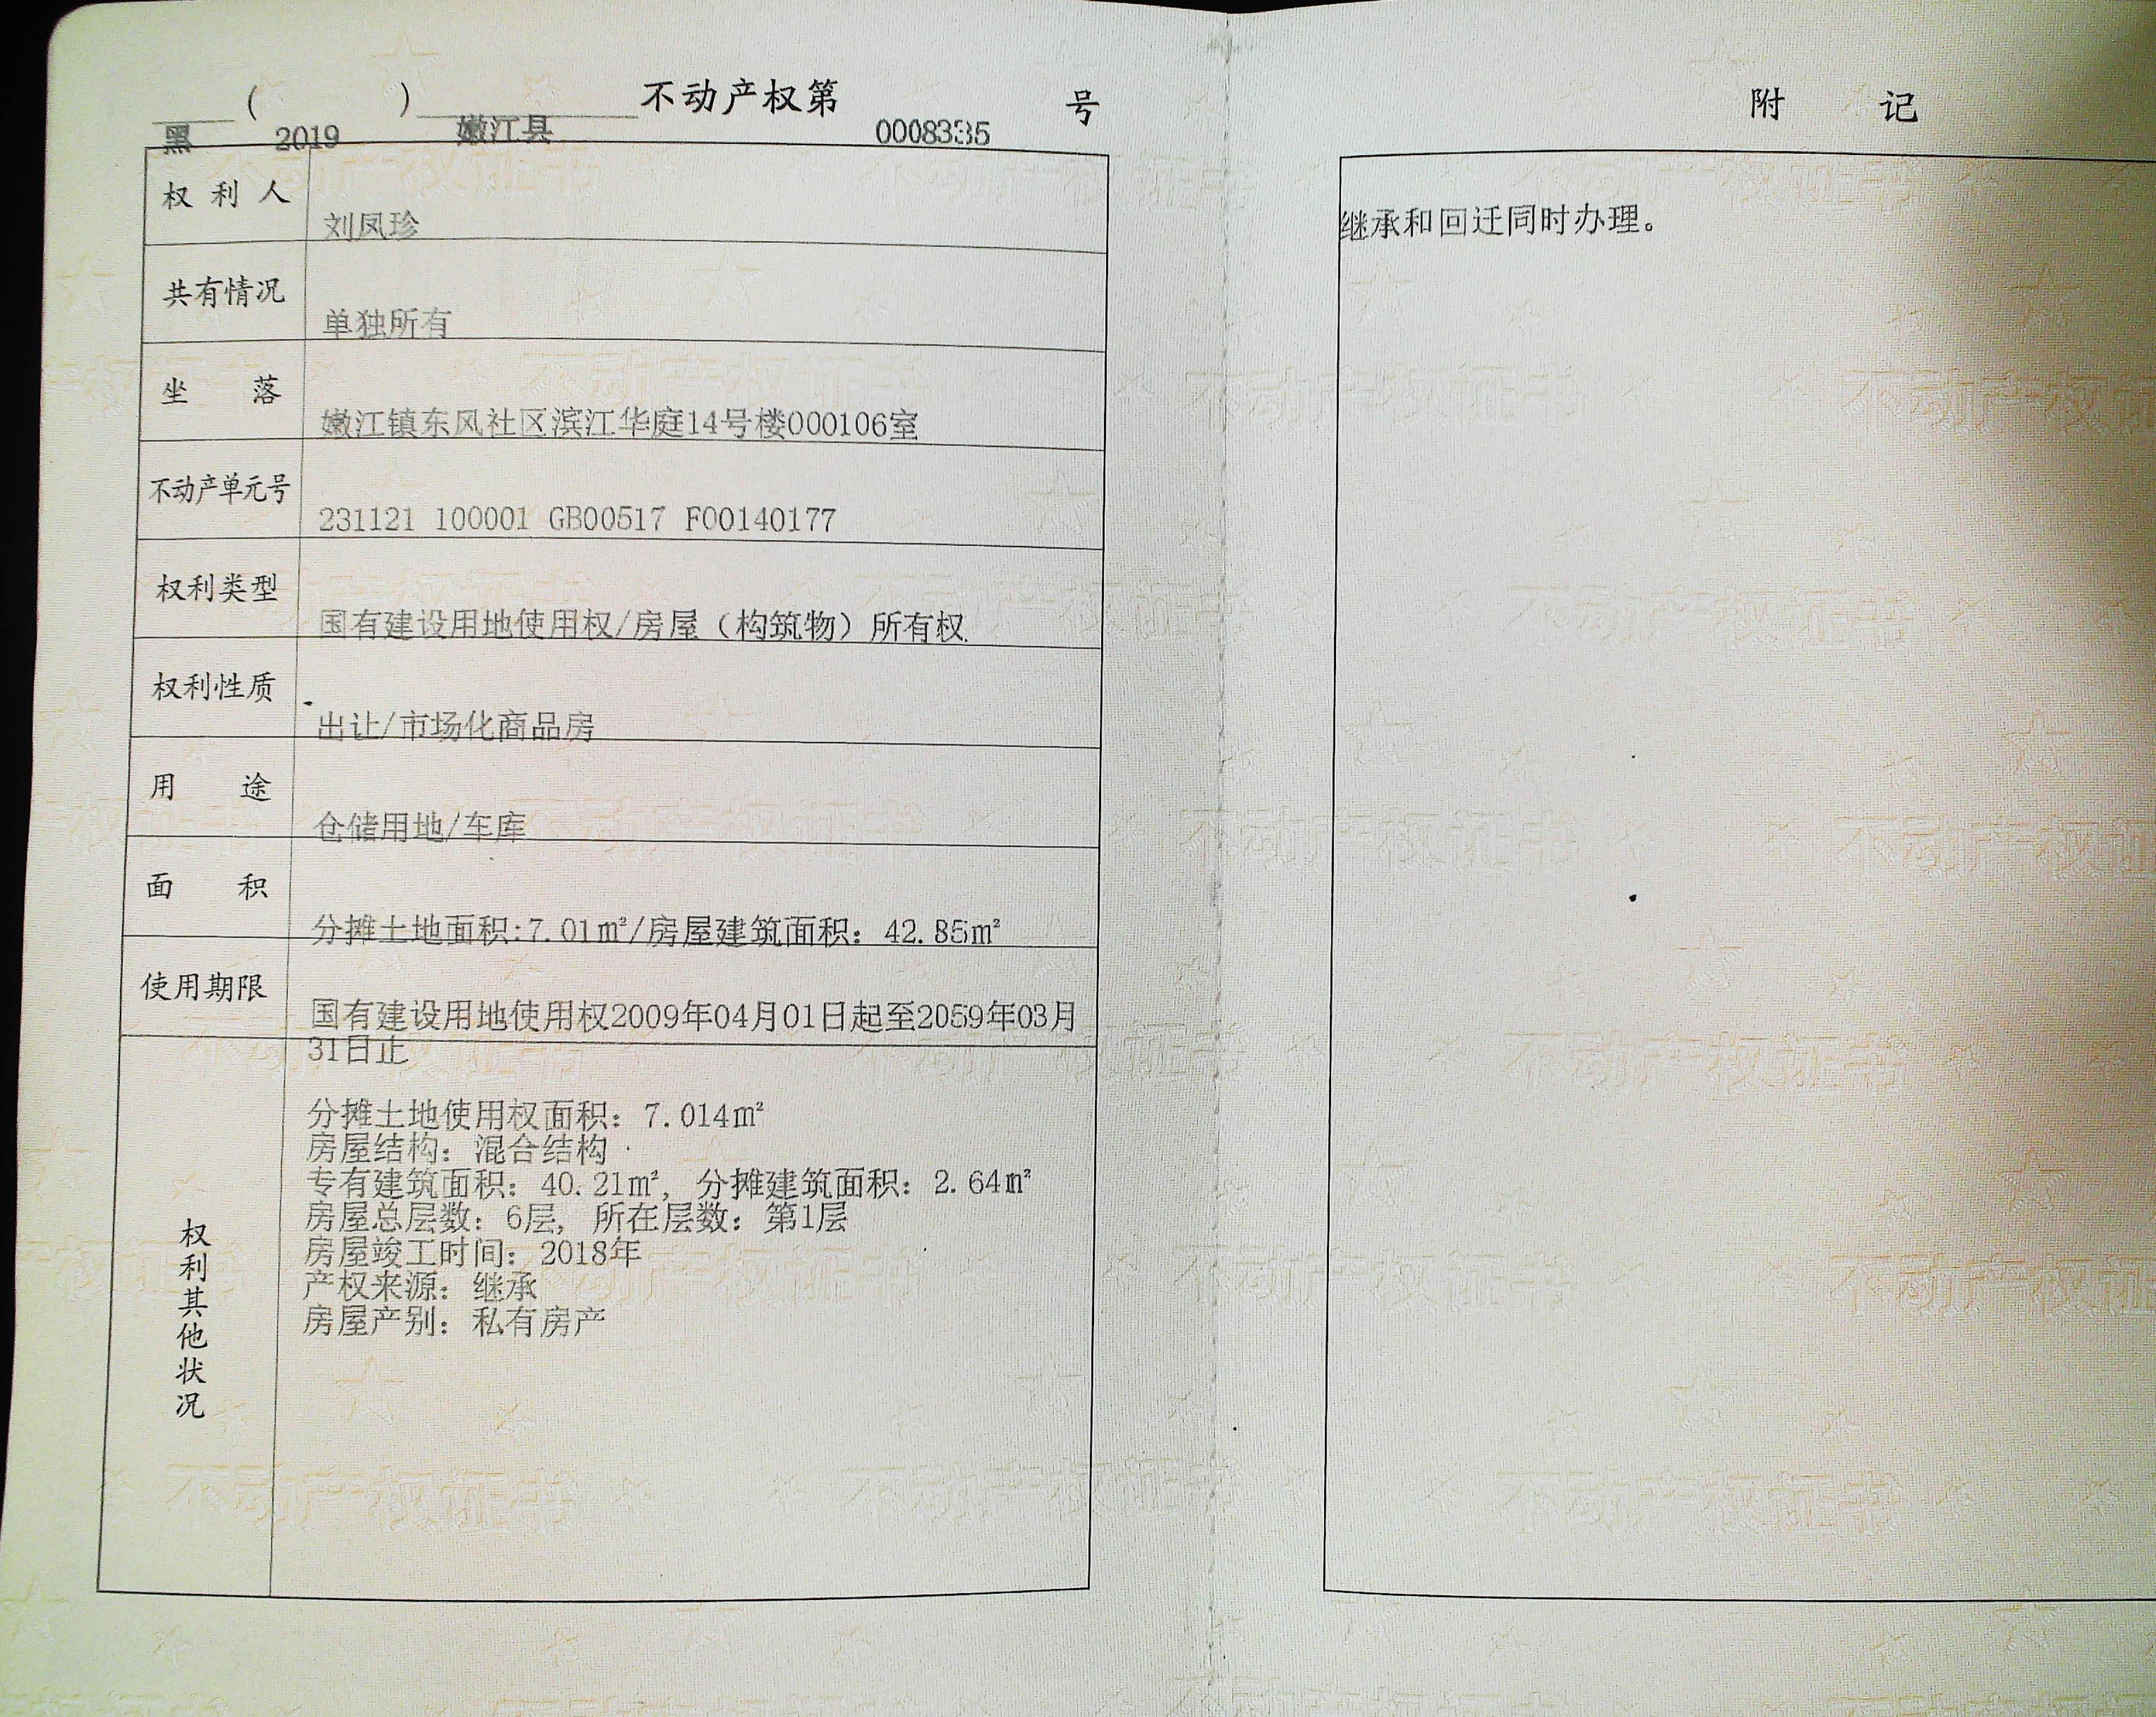 黑（2019）嫩江县不动产权第0008335号
权利人 刘凤珍
共有情况 单独所有
坐落 嫩江镇东风社区滨江华庭14号楼000106室
不动产单元号 231121 100001 GB00517 F00140177
权利类型 国有建设用地使用权/房屋（构筑物）所有权
权利性质 出让/市场化商品房
用途 仓储用地/车库
面积 分摊土地面积:7.01㎡/房屋建筑面积：42.85㎡
使用期限 国有建设用地使用权2009年04月01日起至2059年03月
31日止
权利其他状况
分摊土地使用权面积：7.014㎡
房屋结构：混合结构
专有建筑面积：40.21㎡，分摊建筑面积：2.64㎡
房屋总层数：6层，所在层数：第1层
房屋竣工时间：2018年
产权来源：继承
房屋产别：私有房产
附记
继承和回迁同时办理。